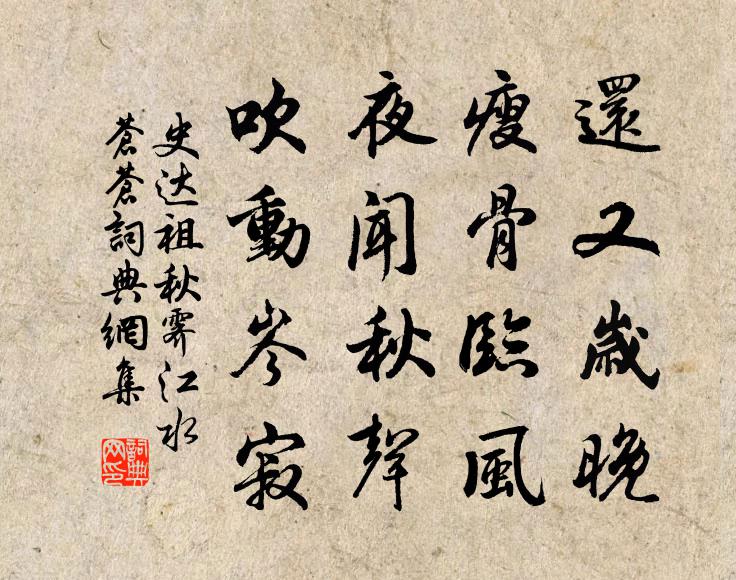 還又歲晚
瘦骨臨風
夜聞秋聲
吹動岑寂
史达祖秋霽江水
蒼蒼詞典網集
詞典
网印